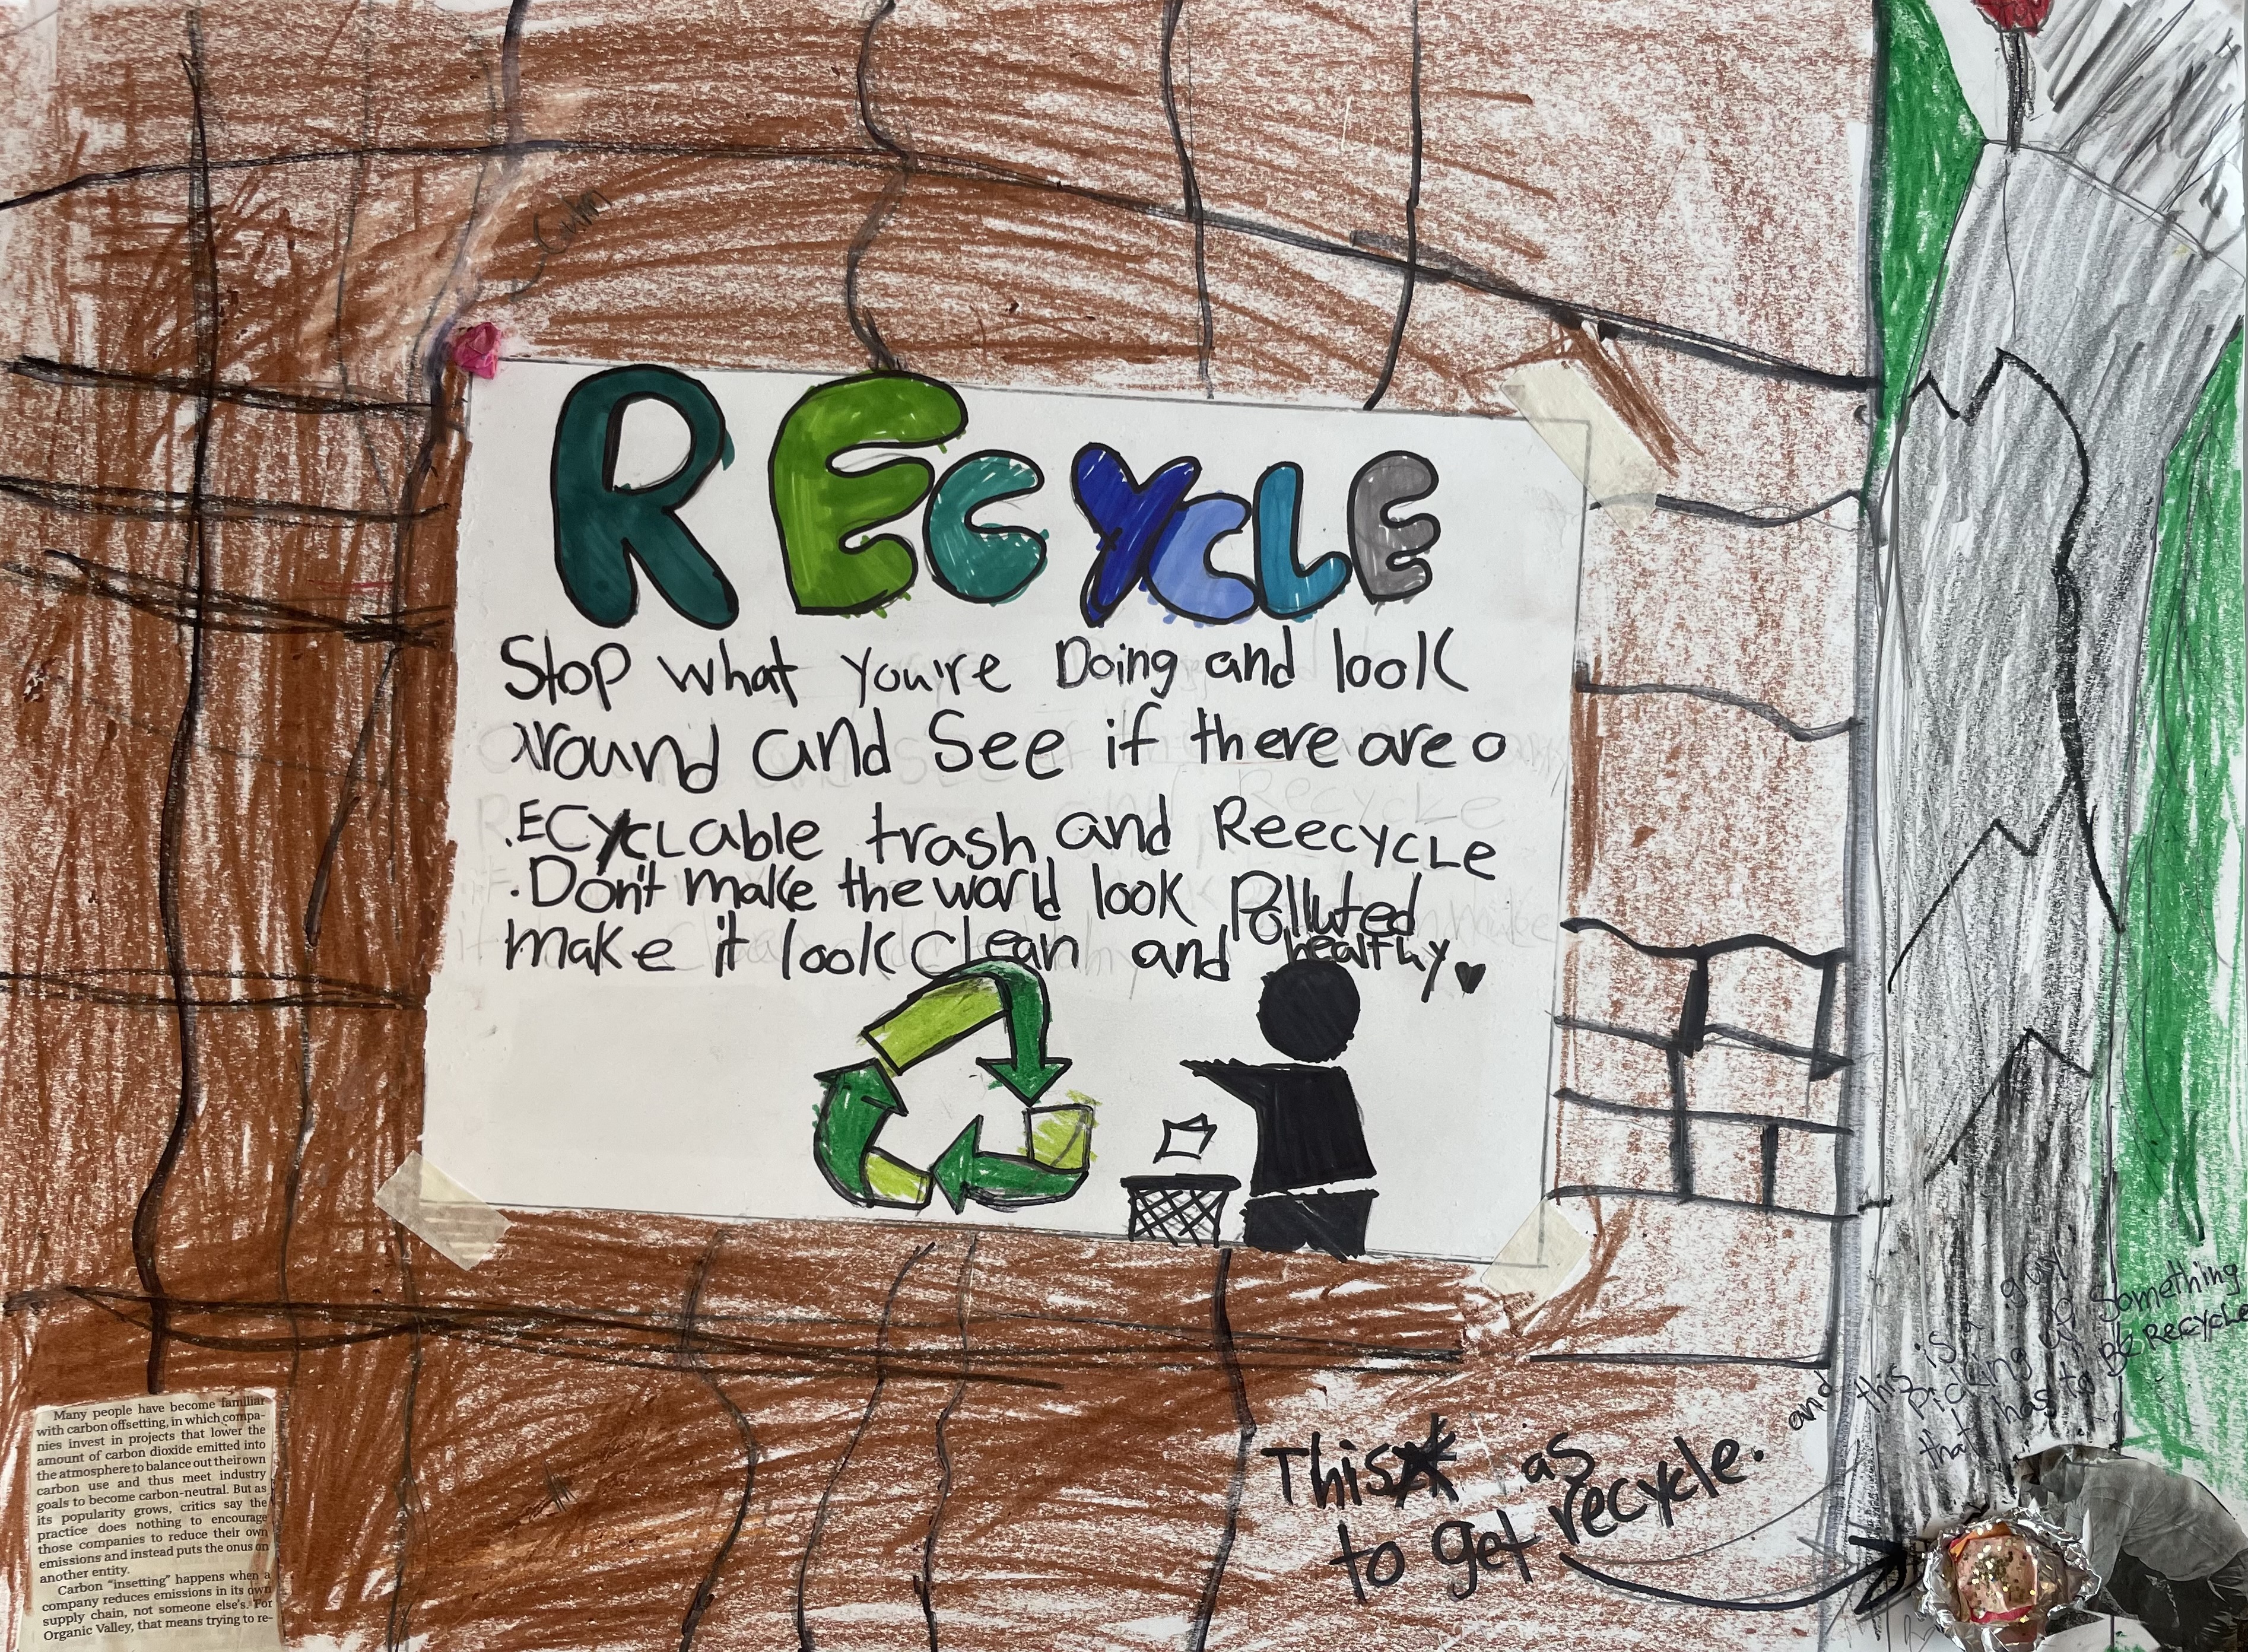 Gum
RECYCLE
Stop what you're Doing and look
around and see if there are a
RECYCLable trash and Reecycle
• Don't make the world look Polluted
make it look clean and healthy
Many people have become familiar
with carbon offsetting, in which compa-
nies invest in projects that lower the
amount of carbon dioxide emitted into
the atmosphere to balance out their own
carbon use and thus meet industry
goals to become carbon-neutral. But as
its popularity grows, critics say the
practice does nothing to encourage
those companies to reduce their own
emissions and instead puts the onus on
another entity.
Carbon "insetting" happens when a
company reduces emissions in its own
supply chain, not someone else's. For
Organic Valley, that means trying to re-
This as
to get recycle.
and this is a guy
Picking up Something
that has to BE RECYCLE